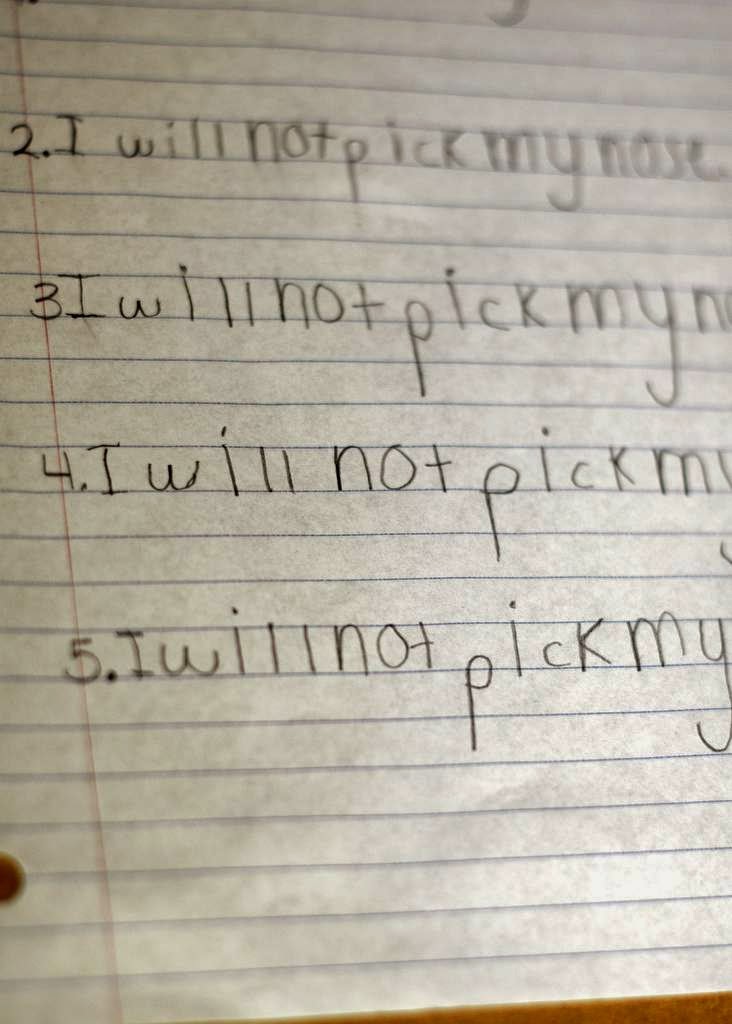 2. I will not pick my nose.
3 I will not pick my n
4. I will not pick my
5. I will not pick my